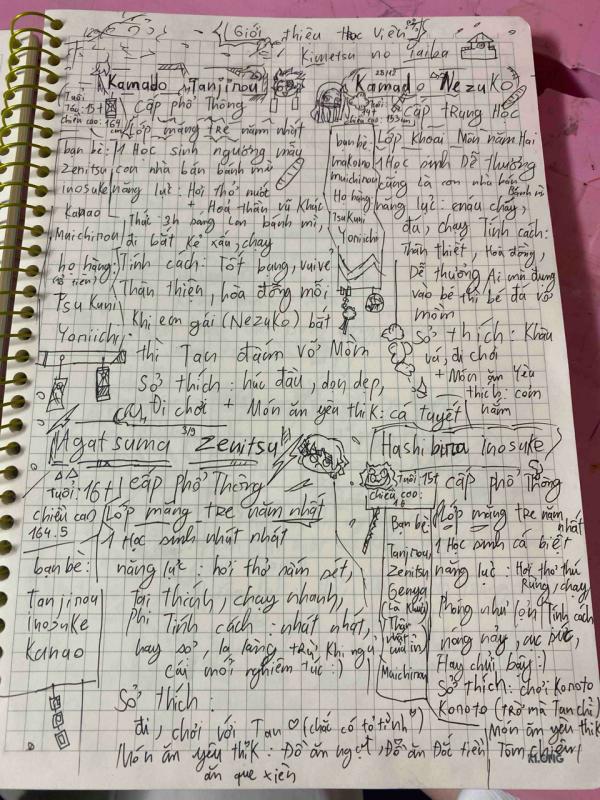 Giới thiệu Học viên
Kimetsu no Taiba
Kamado Tanjirou
Tuổi: 15+
chiều cao: 164 cm
Cấp phổ Thông
Lớp măng tre năm nhất
bạn bè:
Zenitsu
inosuke
Kanao
Muichirou
họ hàng:
(tổ tiên)
Tsu Kuni
Yoriichi
1 Học sinh gương mẫu
con nhà bán bánh mì
năng lực: Hơi thở nước
+ Hoả thần vũ Khúc
Thức 3h sáng làm bánh mì,
đi bắt kẻ xấu, chạy
Tính cách: Tốt bụng, vui vẻ
Thân thiện, hòa đồng mỗi
Khi em gái (NeZuKo) bắt
thì Tan đấm vỡ Mồm
Sở thích: húc đầu, dọn dẹp,
Đi chơi + Món ăn yêu thiK: cá tuyết
Kamado NeZuKo
28/12
chiều cao: 153cm
Cấp trung Học
Lớp Khoai Môn năm Hai
bạn bè:
maKomo
muichirou
Họ hàng:
TsuKuni
Yoriichi
1 Học sinh Dễ thương
cũng là con nhà bán Bánh mì
năng lực: máu cháy,
đá, chạy Tính cách:
Thân thiết, Hoà đồng,
Dễ thương Ai mà đụng
vào bé thì bé đá vỡ
mồm
Sở thích: Khâu
vá, đi chơi
+ Món ăn Yêu
thích: cơm
nắm
Agatsuma Zenitsu
3/9
Tuổi: 16+
chiều cao
164.5
Cấp phổ Thông
Lớp măng tre năm nhất
1 Học sinh nhút nhát
bạn bè:
Tanjirou
inosuKe
Kanao
năng lực: hơi thở sấm sét,
Tai thính, chạy nhanh,
Phi Tính cách: nhút nhát,
hay sợ, la làng trừ Khi ngủ
cái mới nghiêm túc :)
Sở thích:
đi, chơi với Tan ♡ (chắc có tỏ tình ♡)
Món ăn yêu thiK: Đồ ăn ngọt, Đồ ăn Đắc tiền
ăn que xiên
Hashibira inosuke
Tuổi: 15+
chiều cao:
16
cấp phổ Thông
Lớp măng tre năm nhất
Bạn bè:
Tanjirou
Zenitsu
Genya
Muichirou
1 Học sinh cá biệt
năng lực: Hơi thở thú
Rừng, chạy
Phóng như lợn Tính cách
nóng nảy, cục súc,
Hay chửi bậy :)
Sở thích: chơi Konoto
Konoto (trò mà Tan chỉ)
Món ăn yêu thiK:
Tôm chiên